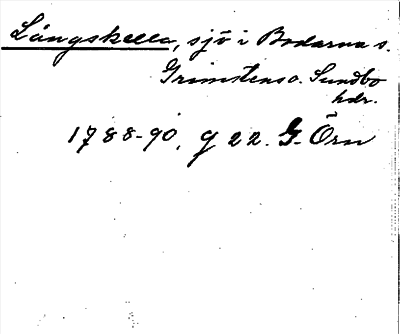 Långskalla, sjö i Bodarna s.
Grimstens o. Sundbo
hdr.
1788-90, g 22. G. Örn